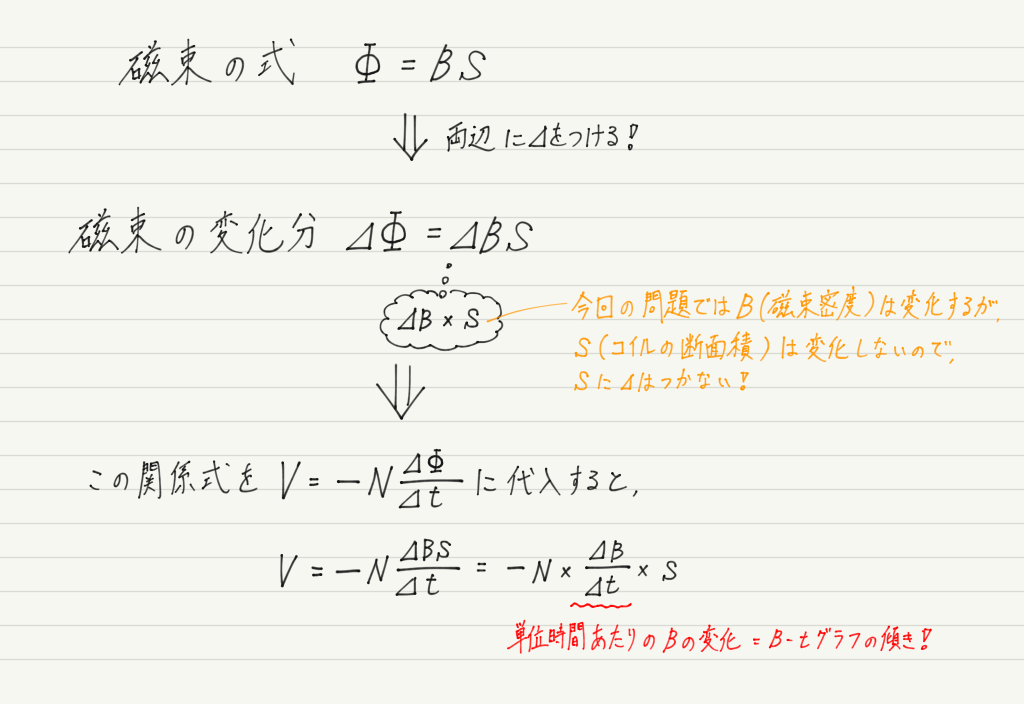 磁束の式 Φ = BS
両辺にΔをつける!
磁束の変化分 ΔΦ = ΔBS
ΔB × S
今回の問題ではB(磁束密度)は変化するが,
S(コイルの断面積)は変化しないので,
SにΔはつかない!
この関係式を V = -N ΔΦ/Δt に代入すると,
V = -N ΔBS/Δt = -N × ΔB/Δt × S
単位時間あたりのBの変化 = B-tグラフの傾き!